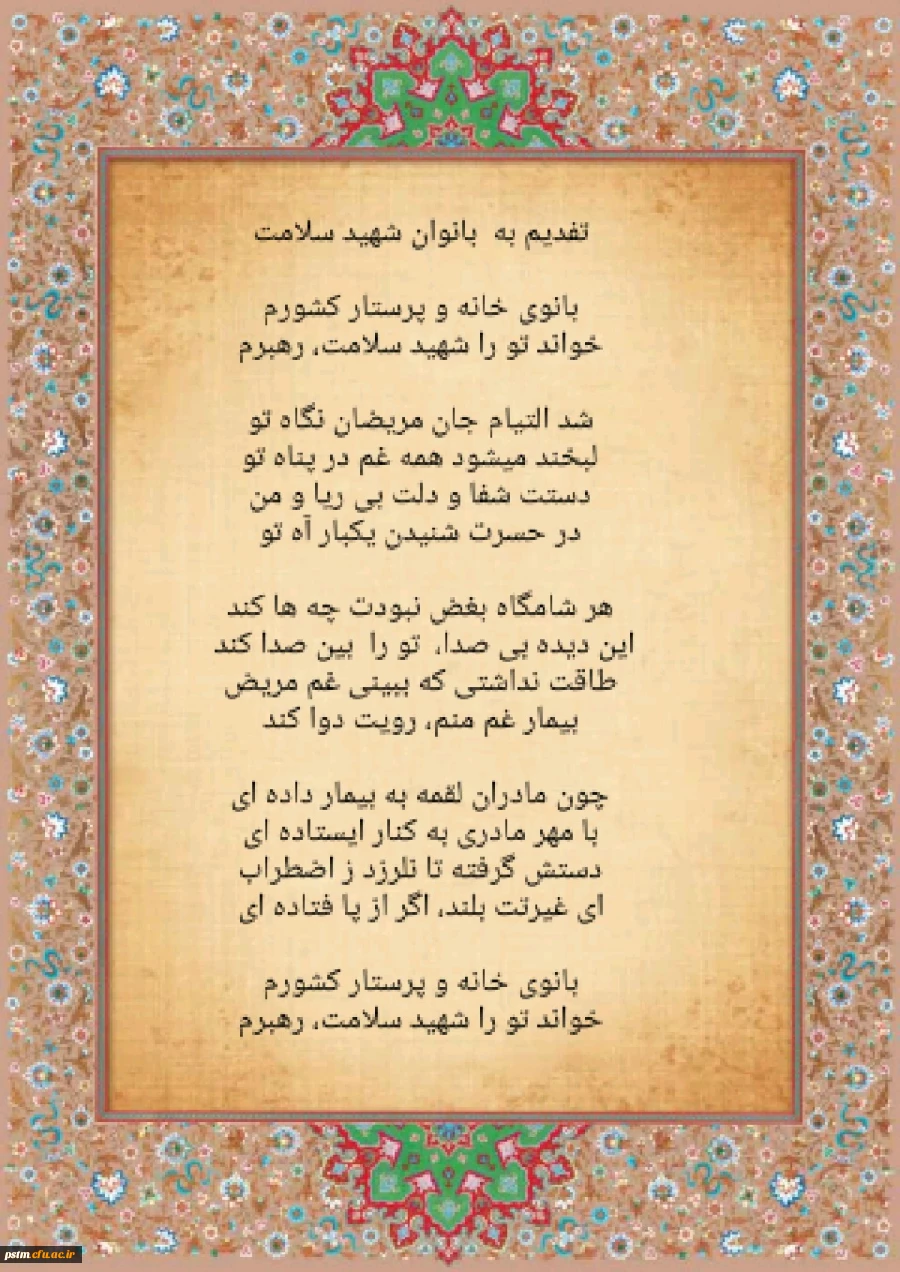 تقدیم به بانوان شهید سلامت
بانوی خانه و پرستار کشورم
خواند تو را شهید سلامت، رهبرم
شد التیام جان مریضان نگاه تو
لبخند میشود همه غم در پناه تو
دستت شفا و دلت بی ریا و من
در حسرت شنیدن یکبار آه تو
هر شامگاه بغض نبودت چه ها کند
این دیده بی صدا، تو را بین صدا کند
طاقت نداشتی که ببینی غم مریض
بیمار غم منم، رویت دوا کند
چون مادران لقمه به بیمار داده ای
با مهر مادری به کنار ایستاده ای
دستش گرفته تا نلرزد ز اضطراب
ای غیرتت بلند، اگر از پا فتاده ای
بانوی خانه و پرستار کشورم
خواند تو را شهید سلامت، رهبرم
pstm.cfu.ac.ir